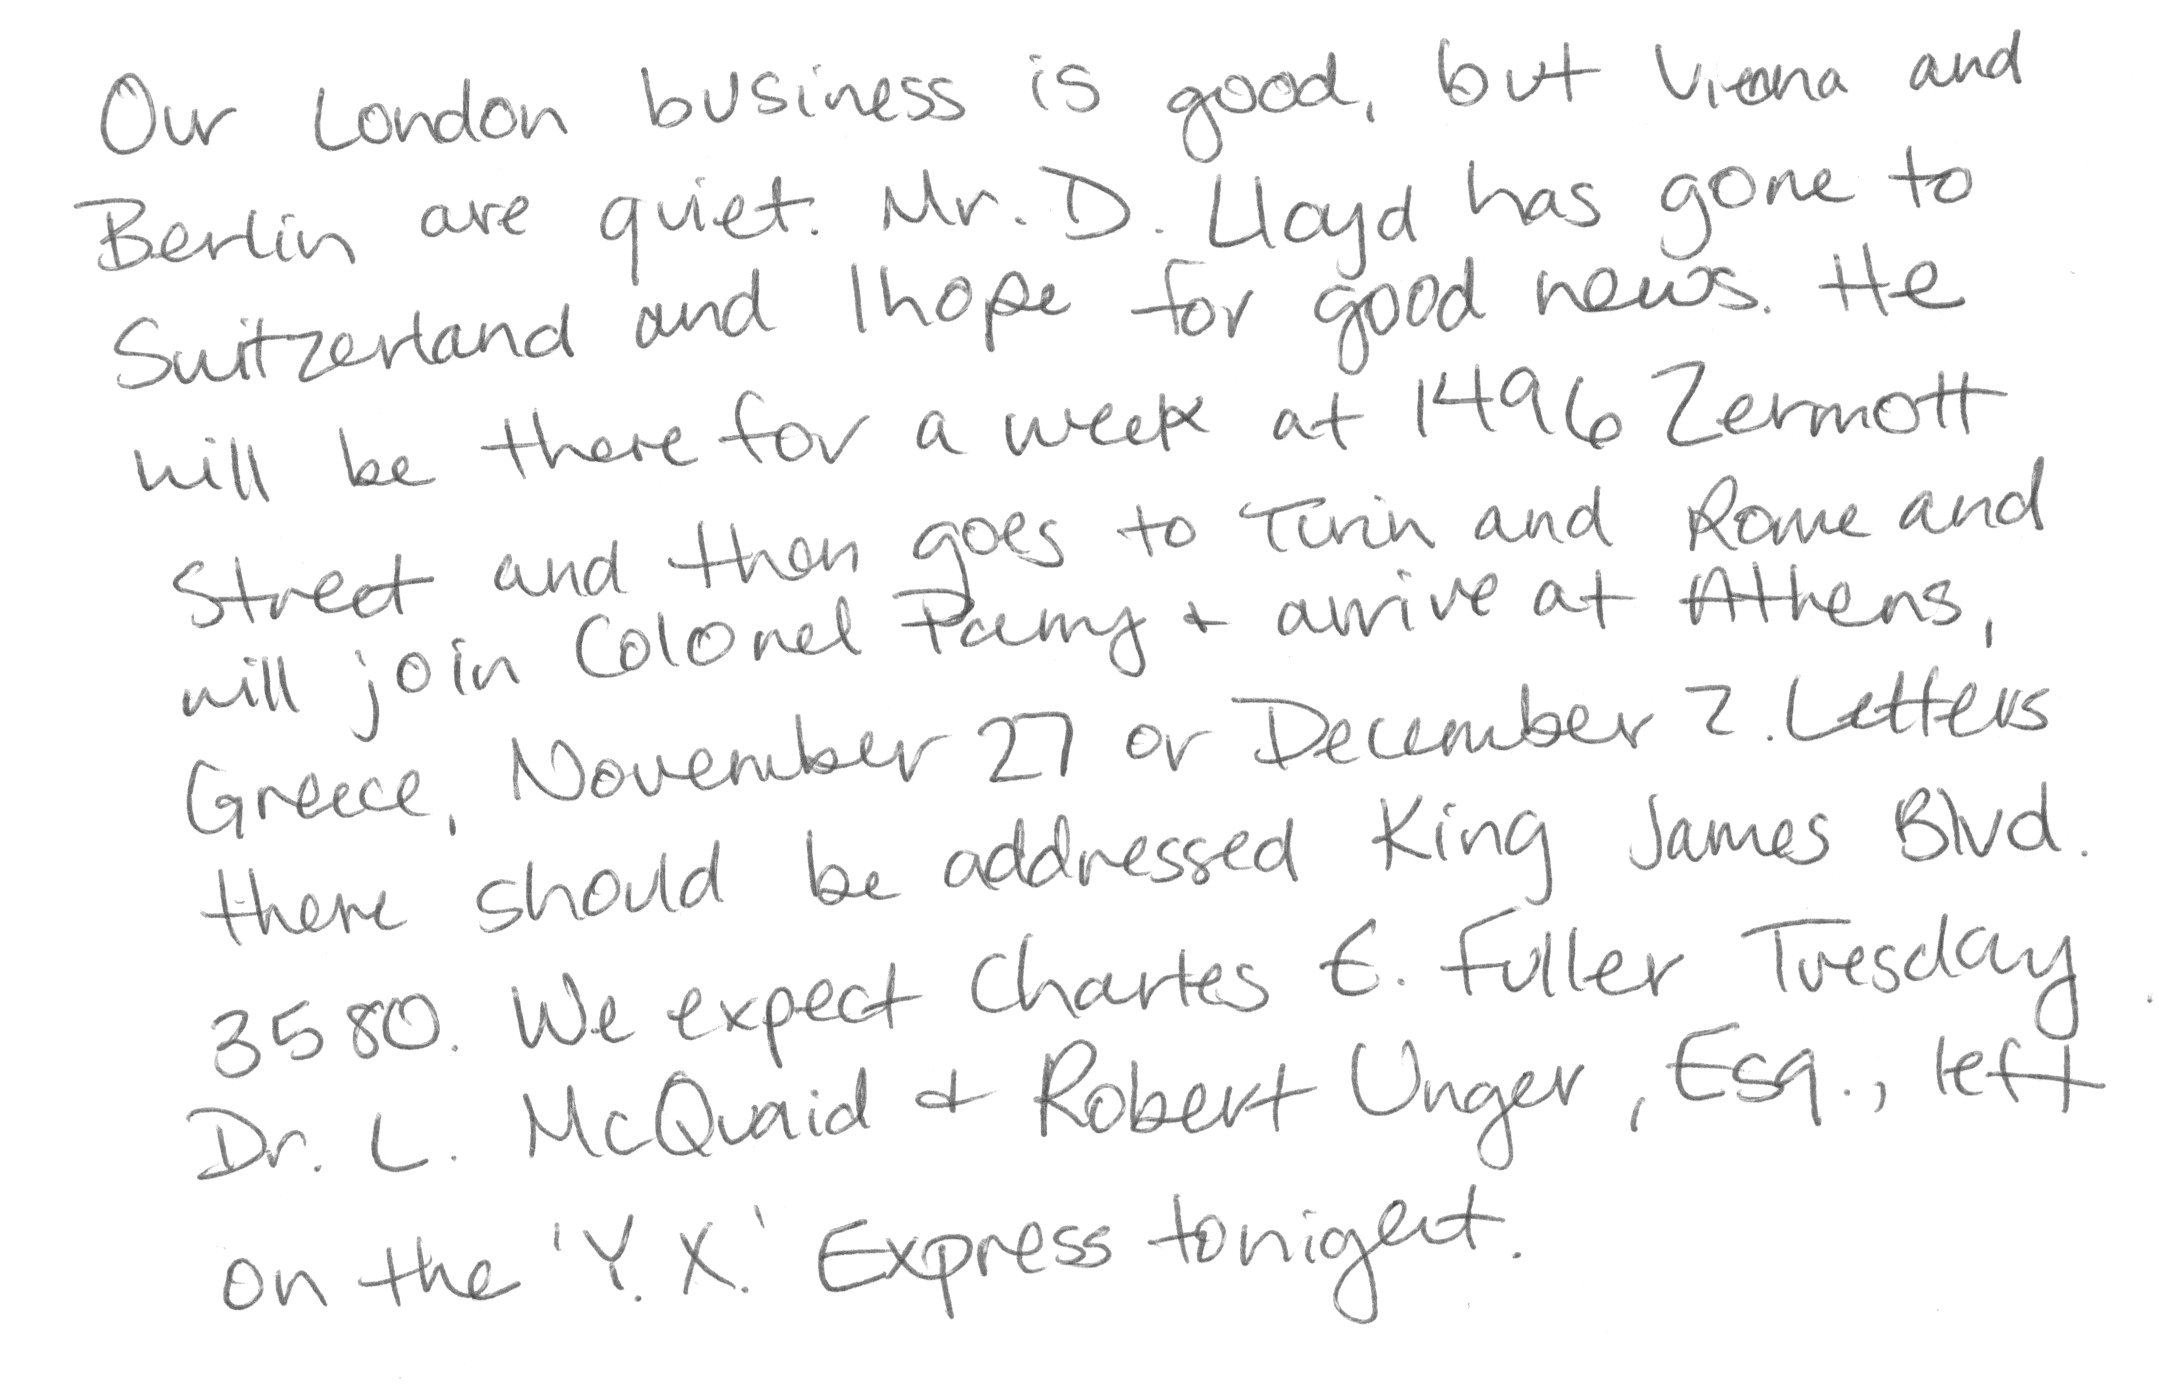 Our London business is good, but Vienna and
Berlin are quiet. Mr. D. Lloyd has gone to
Switzerland and I hope for good news. He
will be there for a week at 1496 Zermott
Street and then goes to Turin and Rome and
will join Colonel Parry + arrive at Athens,
Greece, November 27 or December 2. Letters
there should be addressed King James Blvd.
3580. We expect Charles E. Fuller Tuesday.
Dr. L. McQuaid + Robert Unger, Esq., left
on the 'Y. X.' Express tonight.